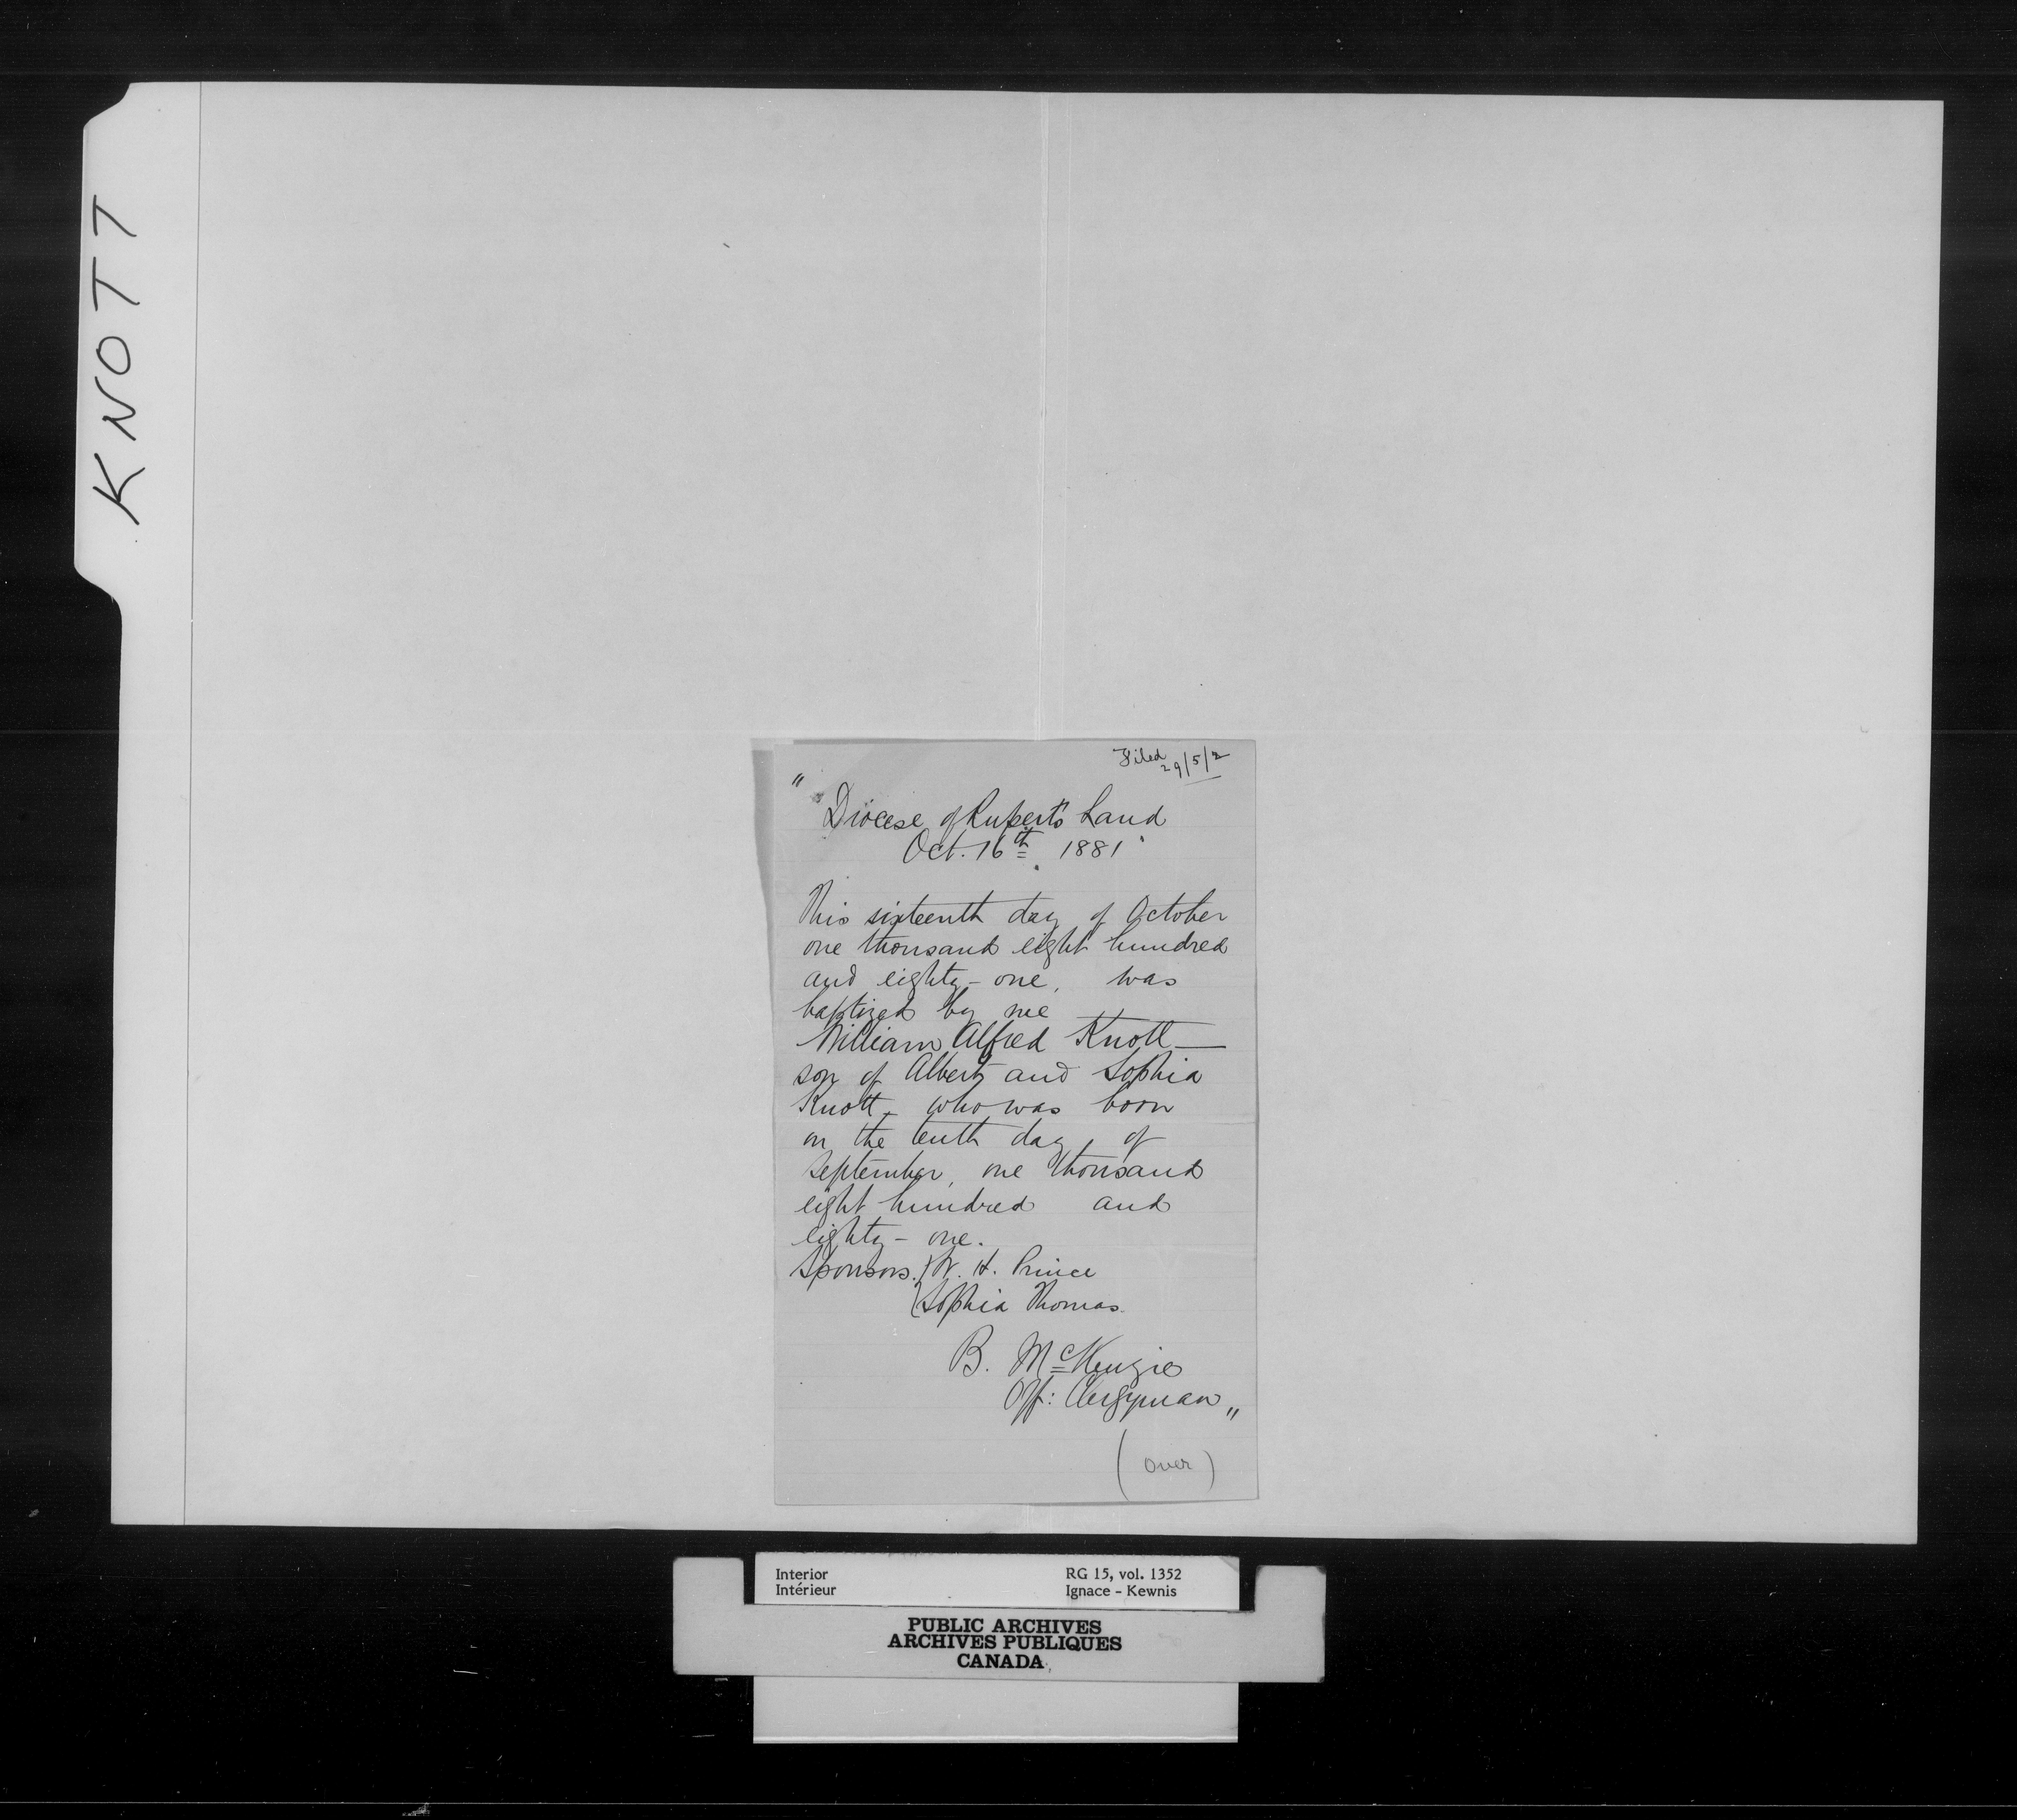 KNOTT
Filed
29/5/2
"
Diocese of Rupert's Land
Oct. 16th 1881
This sixteenth day of October
one thousand eight hundred
and eighty-one, was
baptized by me
William Alfred Knott —
son of Albert and Sophia
Knott, who was born
on the tenth day of
September, one thousand
eight hundred and
eighty-one.
Sponsors. { W. H. Prince
{ Sophia Thomas.
B. McKenzie
Off: Clergyman "
(over)
Interior RG 15, vol. 1352
Intérieur Ignace - Kewnis
PUBLIC ARCHIVES
ARCHIVES PUBLIQUES
CANADA